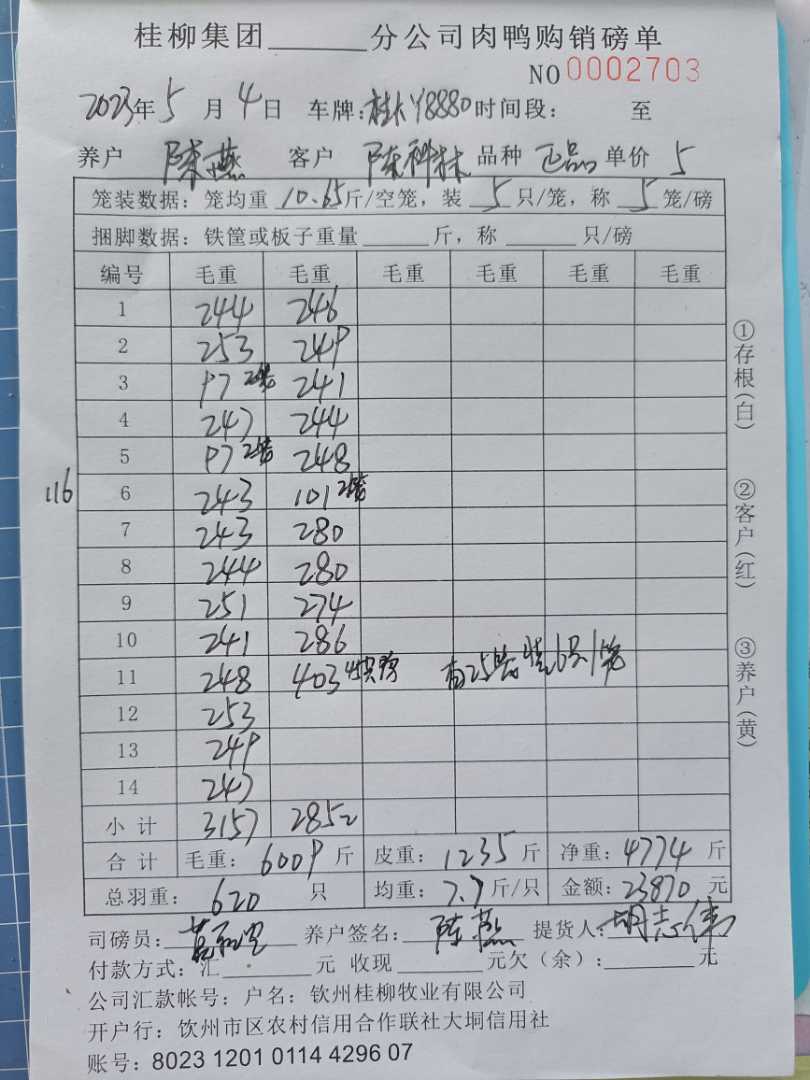 桂柳集团______分公司肉鸭购销磅单
NO 0002703
2023年5月4日 车牌:桂N Y8880 时间段: 至
养户 陈燕 客户 陈科林 品种 正品 单价 5
笼装数据:笼均重 10.65 斤/空笼,装 5 只/笼,称 5 笼/磅
捆脚数据:铁筐或板子重量______斤,称______只/磅
编号 毛重 毛重 毛重 毛重 毛重 毛重
1 244 246
2 253 249
3 97 2笼 241
4 247 244
5 97 2笼 248
116
6 243 101 2笼
7 243 280
8 244 280
9 251 274
10 241 286
11 248 403 有25笼装6只/笼
12 253
13 249
14 247
小计 3157 2852
合计 毛重:6009斤 皮重:1235斤 净重:4774斤
总羽重:620只 均重:7.7斤/只 金额:23870元
司磅员: 养户签名:陈燕 提货人:胡志伟
付款方式:汇______元 收现______元欠(余):______元
公司汇款帐号:户名:钦州桂柳牧业有限公司
开户行:钦州市区农村信用合作联社大垌信用社
账号:8023 1201 0114 4296 07
①存根(白)
②客户(红)
③养户(黄)